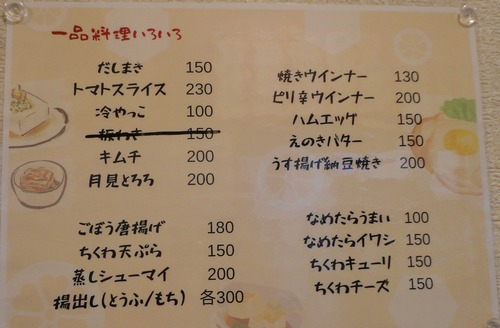 一品料理いろいろ
だしまき 150
トマトスライス 230
冷やっこ 100
板わさ 150
キムチ 200
月見とろろ 200
焼きウインナー 130
ピリ辛ウインナー 200
ハムエッグ 150
えのきバター 150
うす揚げ納豆焼き 200
ごぼう唐揚げ 180
ちくわ天ぷら 150
蒸しシューマイ 200
揚出し(とうふ/もち) 各300
なめたらうまい 100
なめたらイワシ 150
ちくわキューリ 150
ちくわチーズ 150